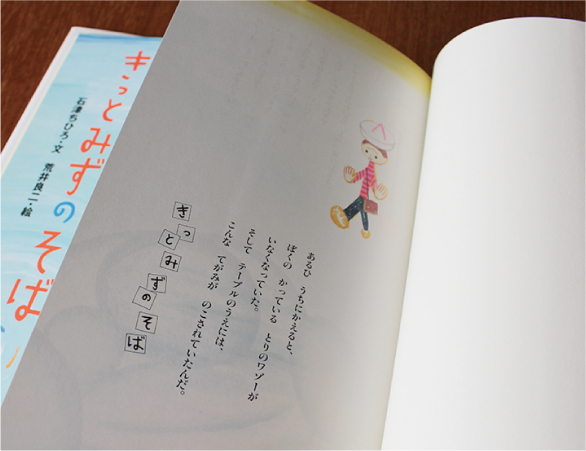 きっとみずのそば
石津ちひろ・文 荒井良二・絵
あるひ うちにかえると、
ぼくの かっている とりのワゾーが
いなくなっていた。
そして テーブルのうえには、
こんな てがみが のこされていたんだ。
きっとみずのそば